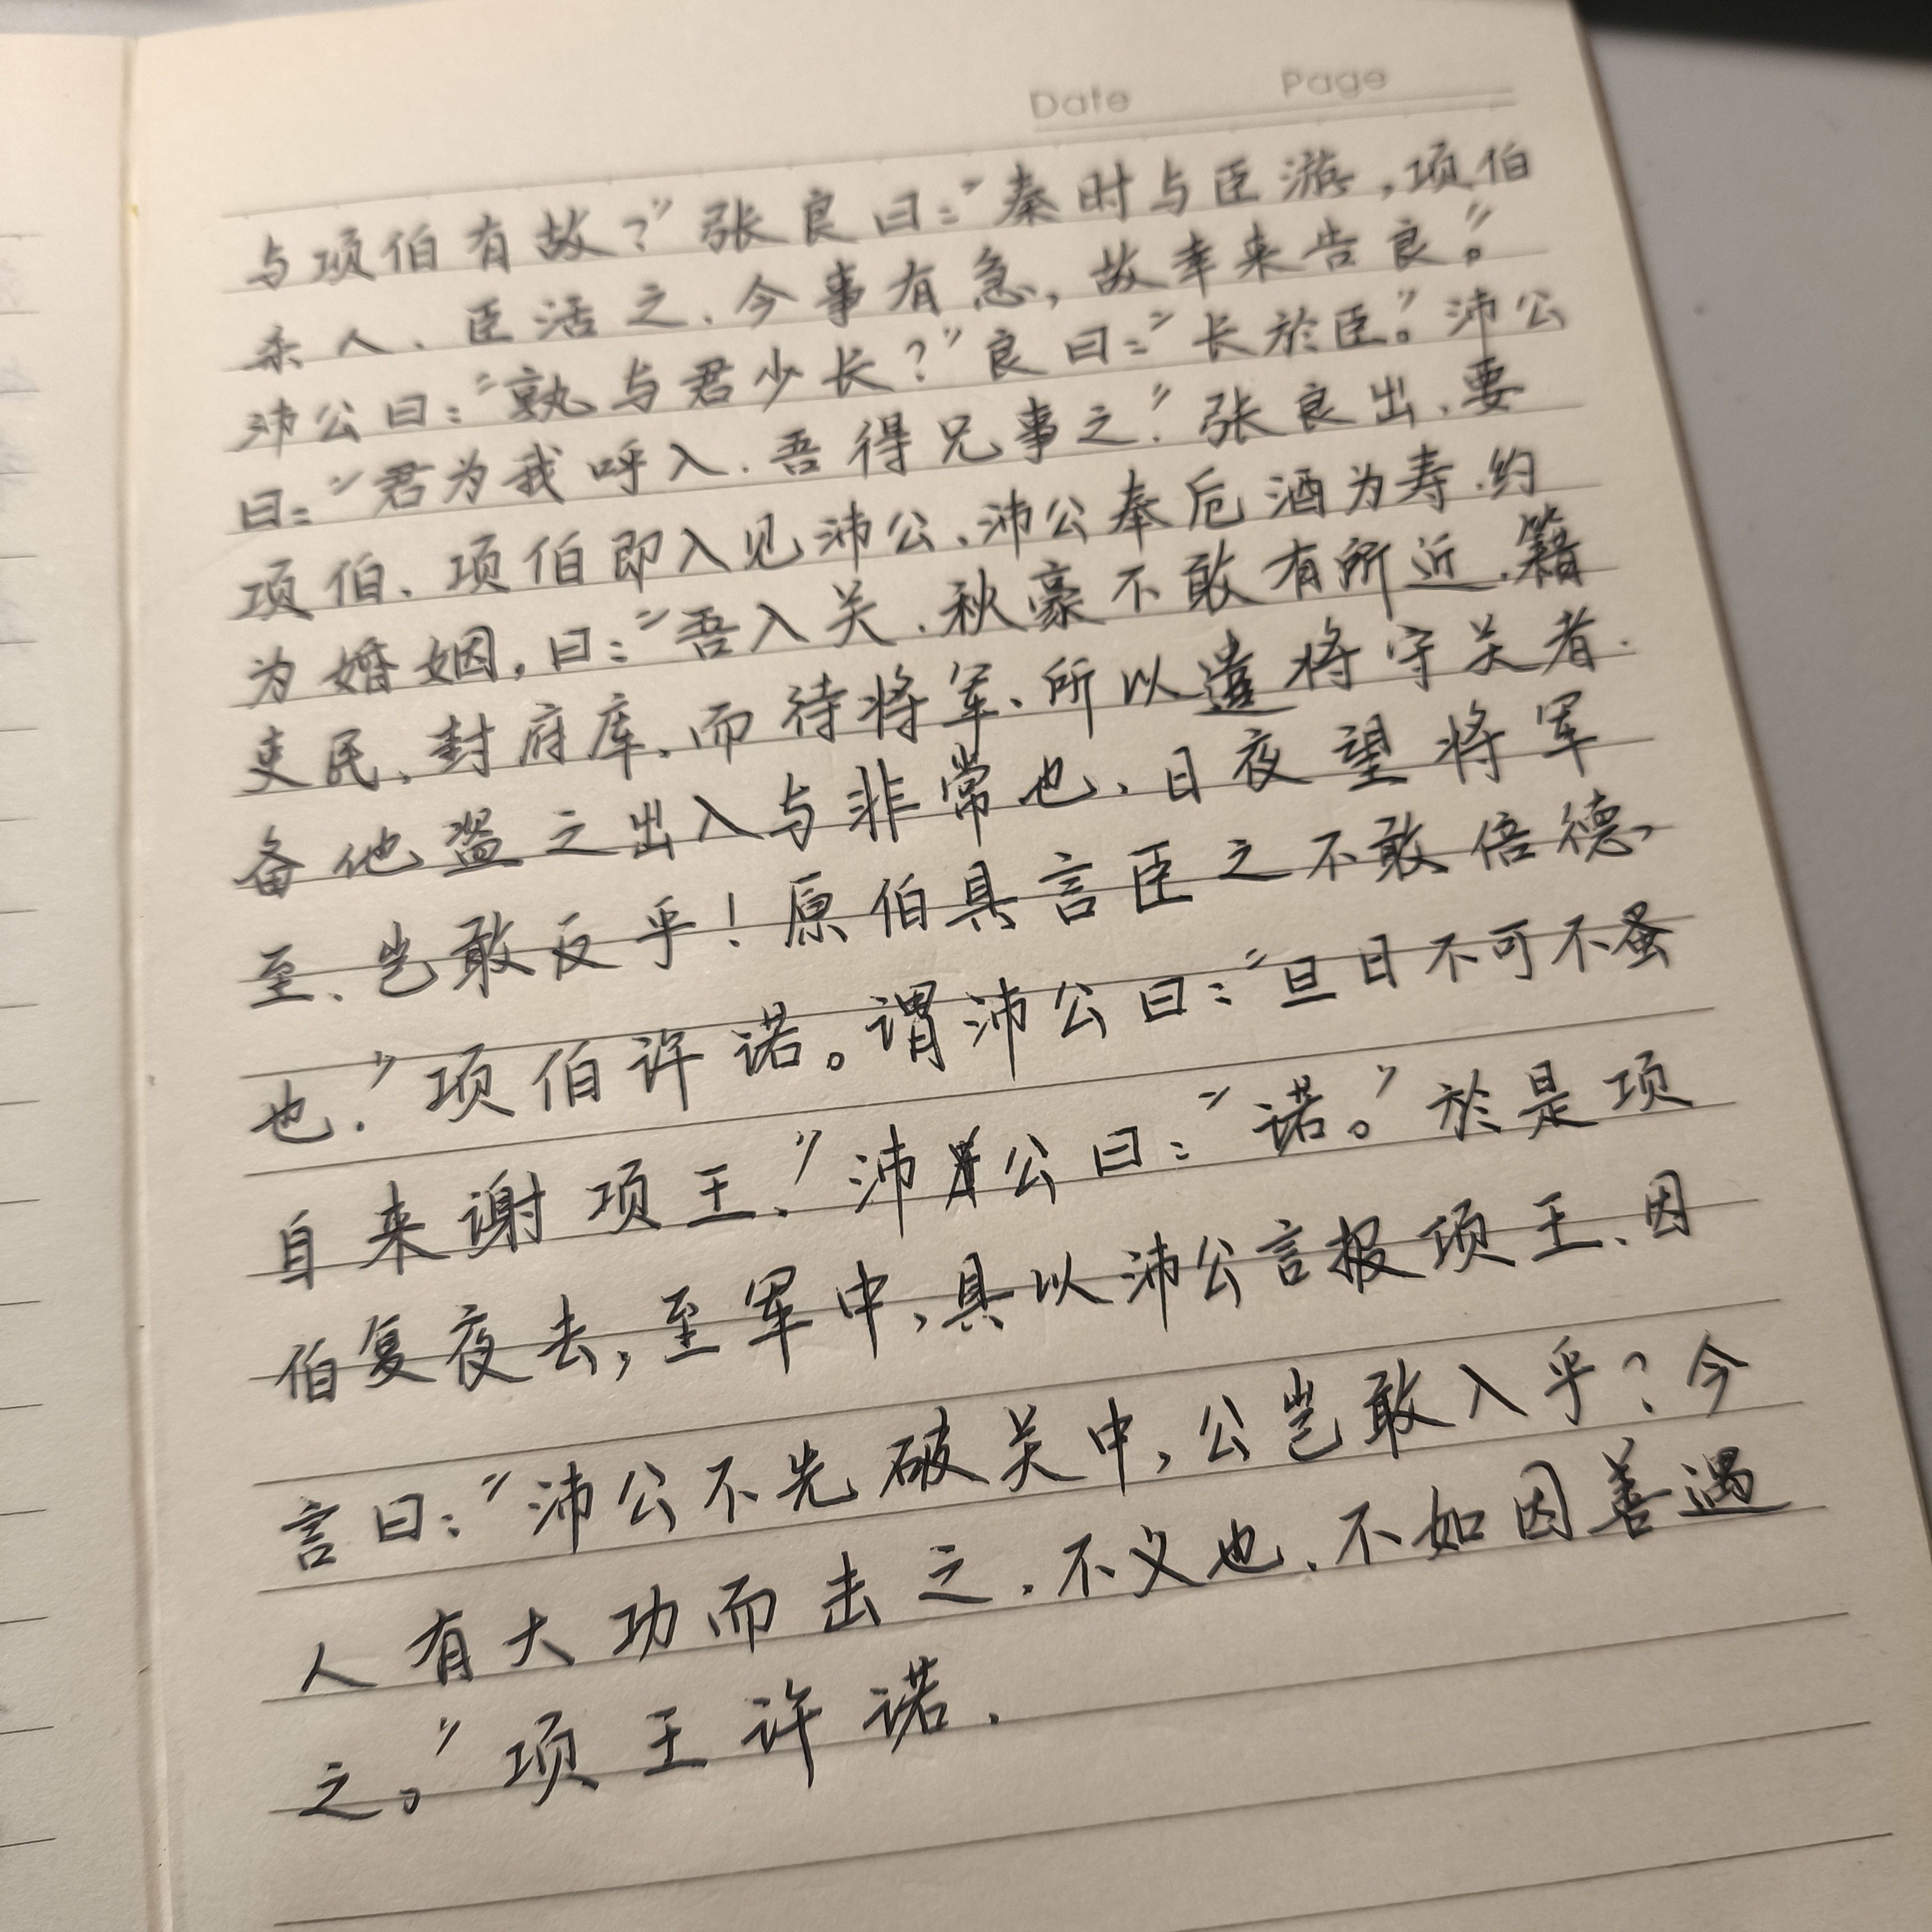 Date Page
与项伯有故？”张良曰：“秦时与臣游，项伯
杀人、臣活之、今事有急，故幸来告良。”
沛公曰：“孰与君少长？”良曰：“长於臣。”沛公
曰：“君为我呼入、吾得兄事之.”张良出、要
项伯、项伯即入见沛公、沛公奉卮酒为寿、约
为婚姻，曰：“吾入关、秋豪不敢有所近、籍
吏民、封府库、而待将军、所以遣将守关者.
备他盗之出入与非常也、日夜望将军
至、岂敢反乎！原伯具言臣之不敢倍德、
也.”项伯许诺。谓沛公曰：“旦日不可不蚤
自来谢项王.”沛公曰：“诺。”於是项
伯复夜去，至军中，具以沛公言报项王、因
言曰：“沛公不先破关中，公岂敢入乎？今
人有大功而击之、不义也、不如因善遇
之。”项王许诺.